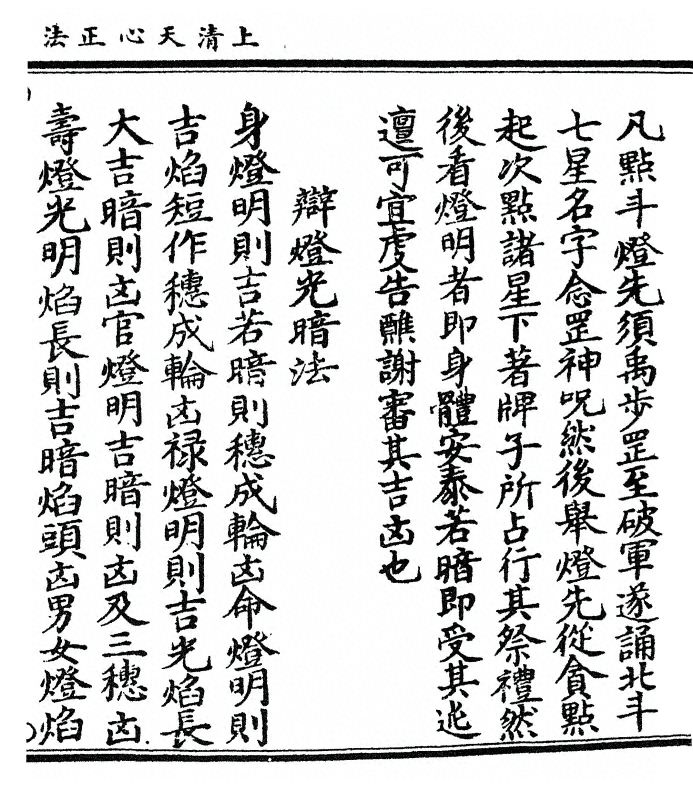 上清天心正法
凡點斗燈先須禹步罡至破軍遂誦北斗
七星名字念罡神呪然後舉燈先從貪點
起次點諸星下著牌子所占行其祭禮然
後看燈明者即身體安泰若暗即受其迍
邅可宜虔告醮謝審其吉凶也
辯燈光暗法
身燈明則吉若暗則穗成輪凶命燈明則
吉焰短作穗成輪凶禄燈明則吉光焰長
大吉暗則凶官燈明吉暗則凶及三穗凶
壽燈光明焰長則吉暗焰頭凶男女燈焰